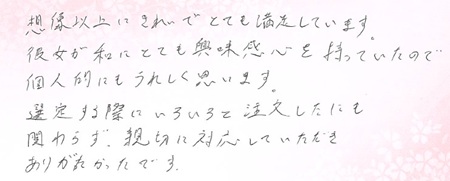 想像以上にきれいでとても満足しています。
彼女が和にとても興味感心を持っていたので
個人的にもうれしく思います。
選定する際にいろいろと注文したにも
関わらず、親切に対応していただき
ありがたかったです。